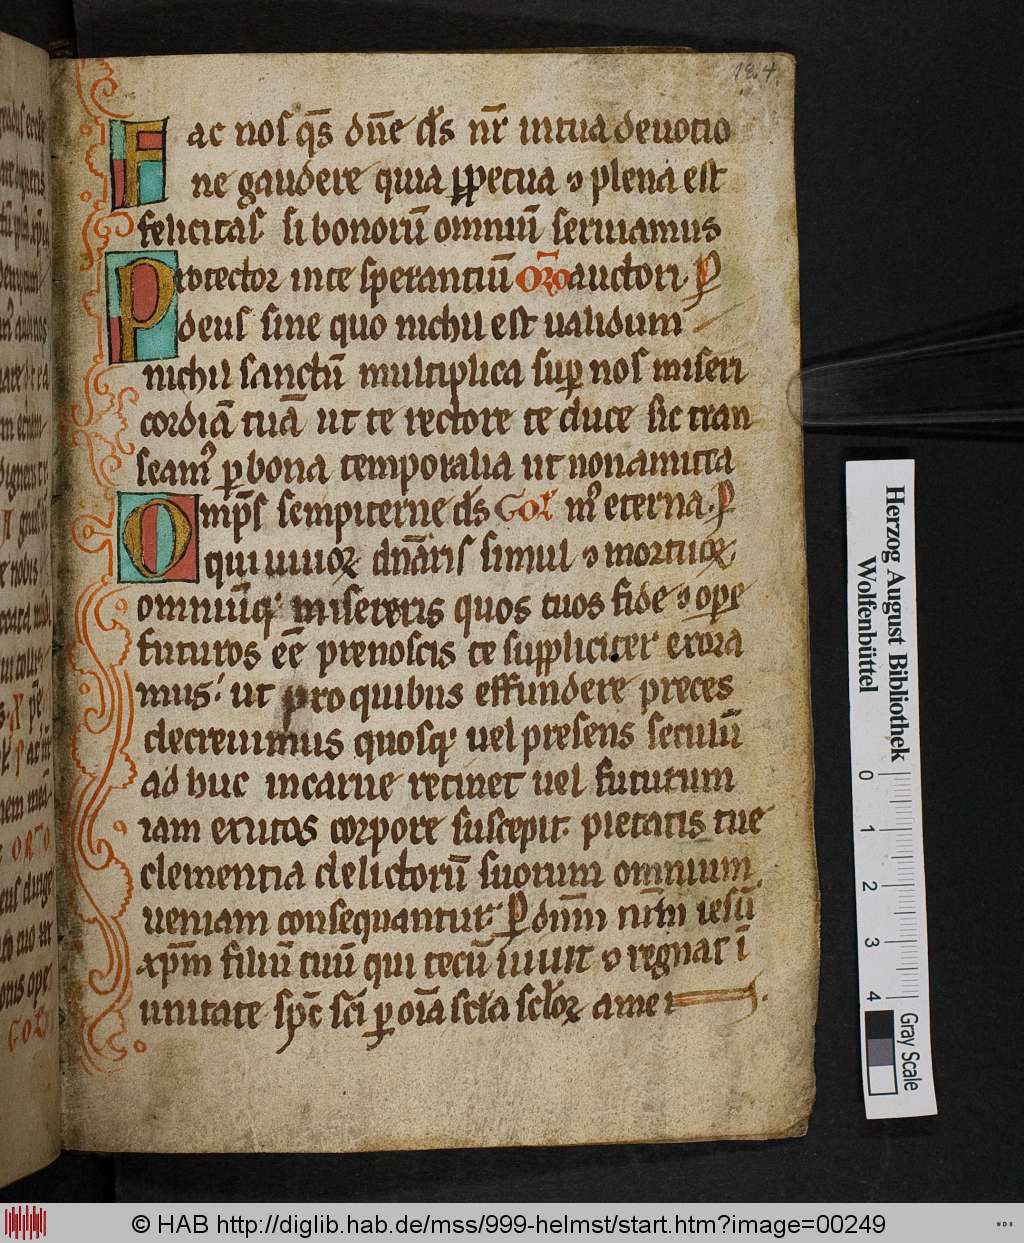 124.
Fac nos q̄s dn̄e ds̄ nr̄ in tua deuotio
ne gaudere quia ꝑpetua ⁊ plena est
felicitas si bonoꝝ omniū seruiamus
Protector in te sperantiū Oro auctori. P
deus sine quo nichil est ualidum
nichil sanctū multiplica suꝑ nos miseri
cordiā tuā ut te rectore te duce sic tran
seamꝰ ꝑ bona temporalia ut non amitta
Omp̄s sempiterne ds̄ Col̄ mꝰ eterna. P
qui uiuoꝝ dn̄aris simul ⁊ mortuoꝝ
omniūq; misereris quos tuos fide ⁊ oꝑe
futuros eē prenoscis te suppliciter exora
mus. ut pro quibus effundere preces
decreuimus quosq; uel presens seculū
ad huc in carne retinet uel futurum
iam exutos corpore suscepit. pietatis tue
clementia delictorū suorum omnium
ueniam consequantur. P dn̄m nr̄m iesū
xp̄m filiū tuū qui tecū uiuit ⁊ regnat ī
unitate sp̄c sc̄i ꝑ oīa scl̄a scl̄oꝝ amen.
Herzog August Bibliothek
Wolfenbüttel
0 1 2 3 4
Gray Scale
© HAB http://diglib.hab.de/mss/999-helmst/start.htm?image=00249